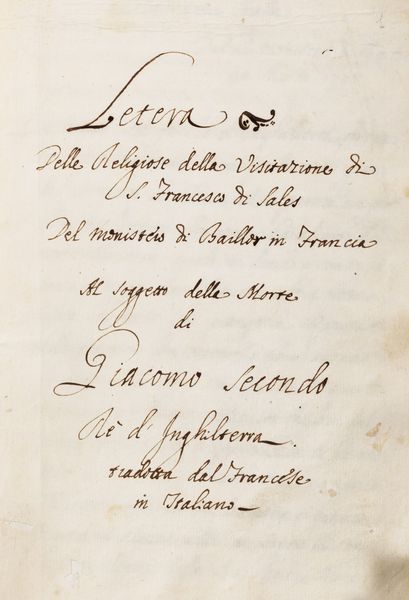 Letera
Delle Religiose della Visitazione di
S. Francesco di Sales
Del monistéio di Baillor in Francia
Al soggetto della Morte
di
Giacomo Secondo
Rè d'Inghilterra
tradotta dal Francése
in Italiano